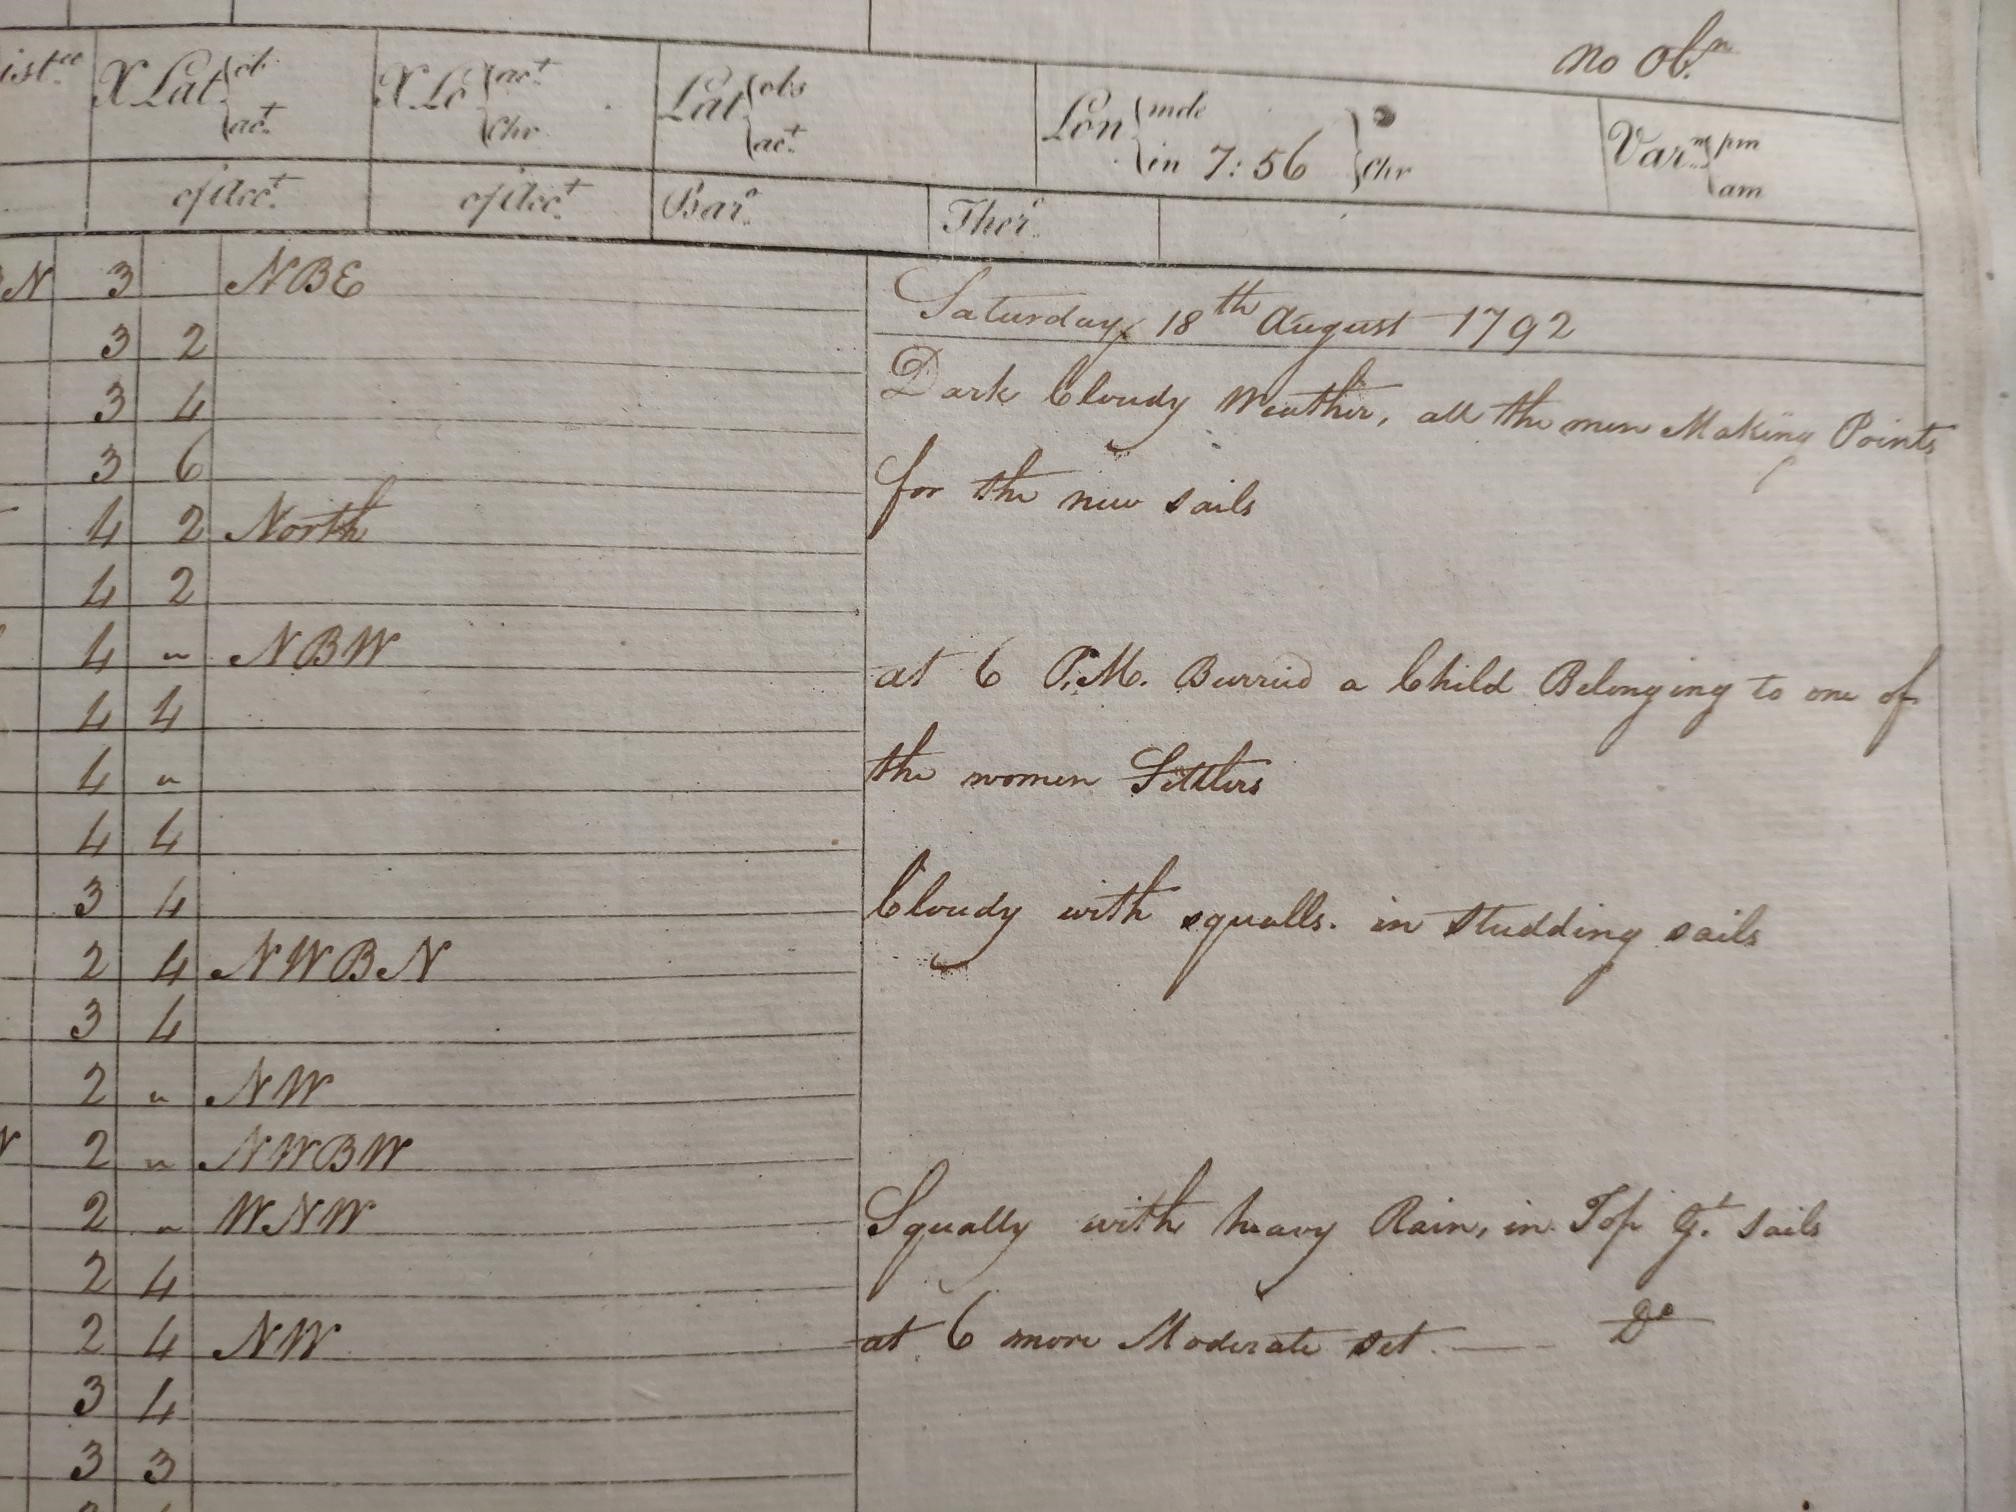 no Obn.
istce X Lat { ob act. X Lo { act chr Lat { obs act. Lon { mde in 7:56 } chr Varn { pm am
of Acct. of Acct. Baro. Ther.
N 3 NBE
Saturday 18th August 1792
3 2
Dark Cloudy Weather, all the men Making Points
3 4
3 6
for the new sails
4 2 North
4 2
4 " NBW
at 6 P.M. Burried a Child Belonging to one of
4 4
the women Settlers
4 "
4 4
3 4
Cloudy with squalls. in studding sails
2 4 NWBN
3 4
2 " NW
2 " NWBW
2 " WNW
Squally with heavy Rain, in Top Gt. sails
2 4
2 4 NW
at 6 more Moderate set. —— Do
3 4
3 3